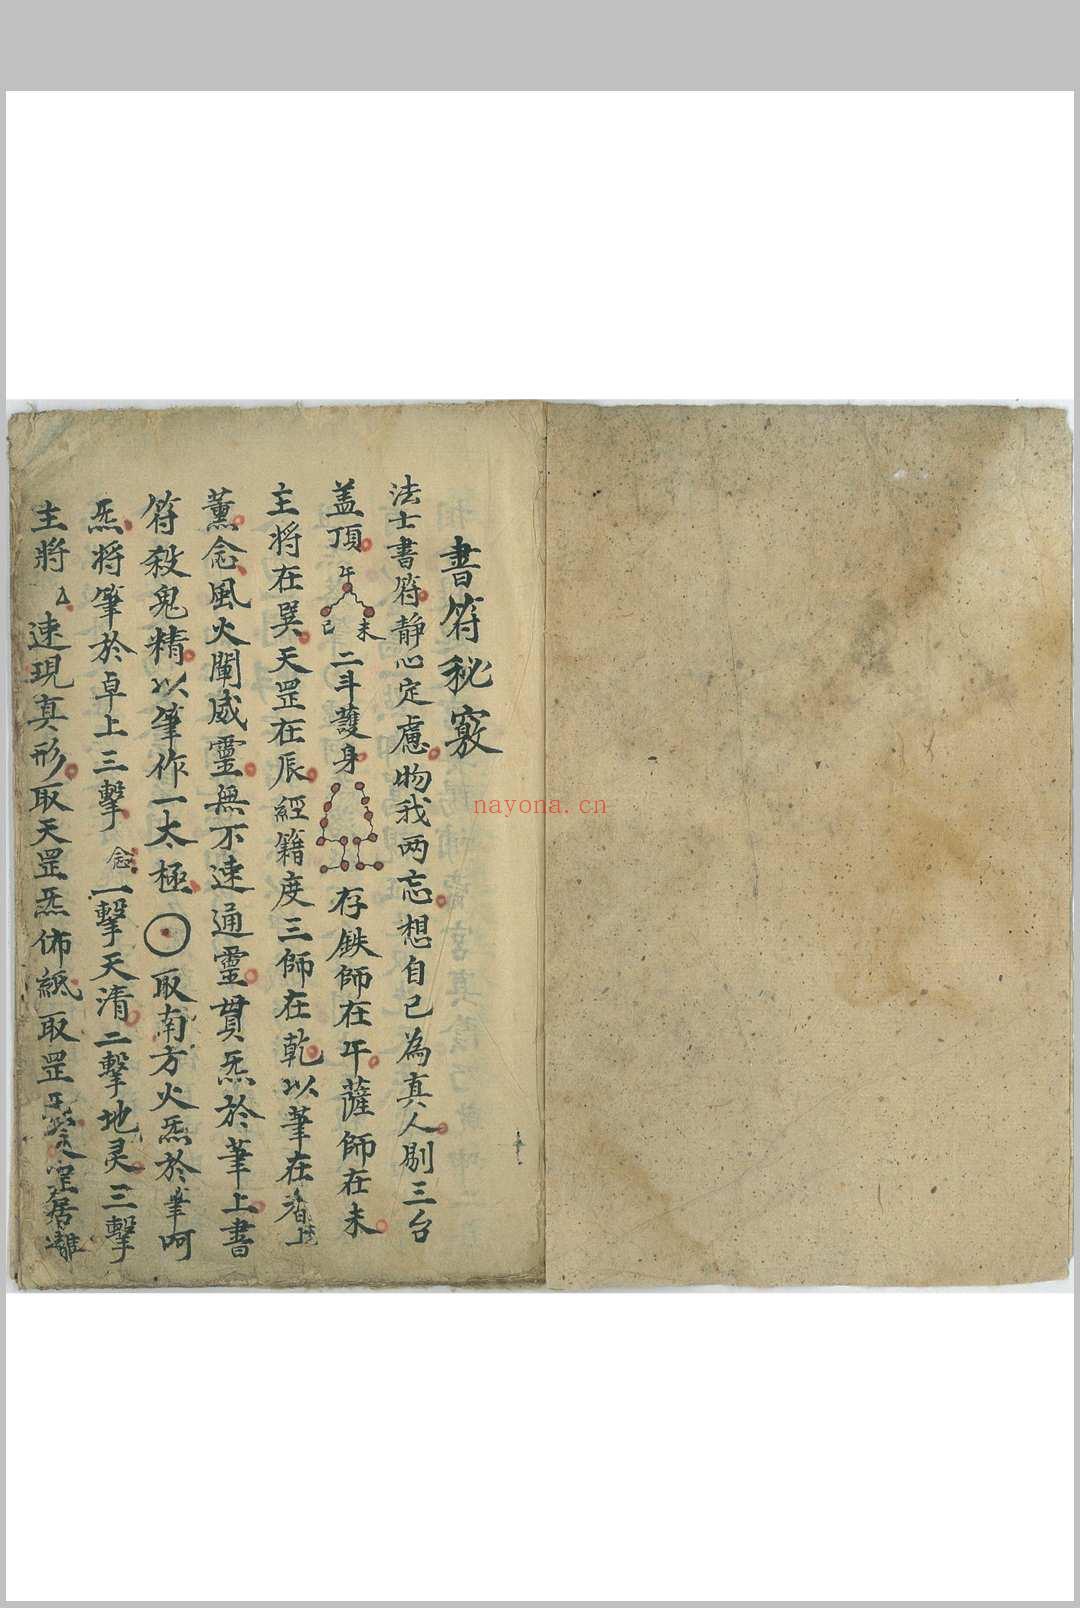 書符秘竅
法士書符靜心定慮物我两忘想自己為真人剔三台
盖頂午巳未二斗護身存鉄師在午薩師在未
主將在巽天罡在辰經籍度三師在乾以筆在香上
薰念風火闡威靈無不速通靈貫炁於筆上書
符殺鬼精以筆作一太極取南方火炁於筆呵
炁將筆於卓上三擊念一擊天清二擊地灵三擊
主將速現真形取天罡炁佈紙取罡炁罡居離
nayona.cn